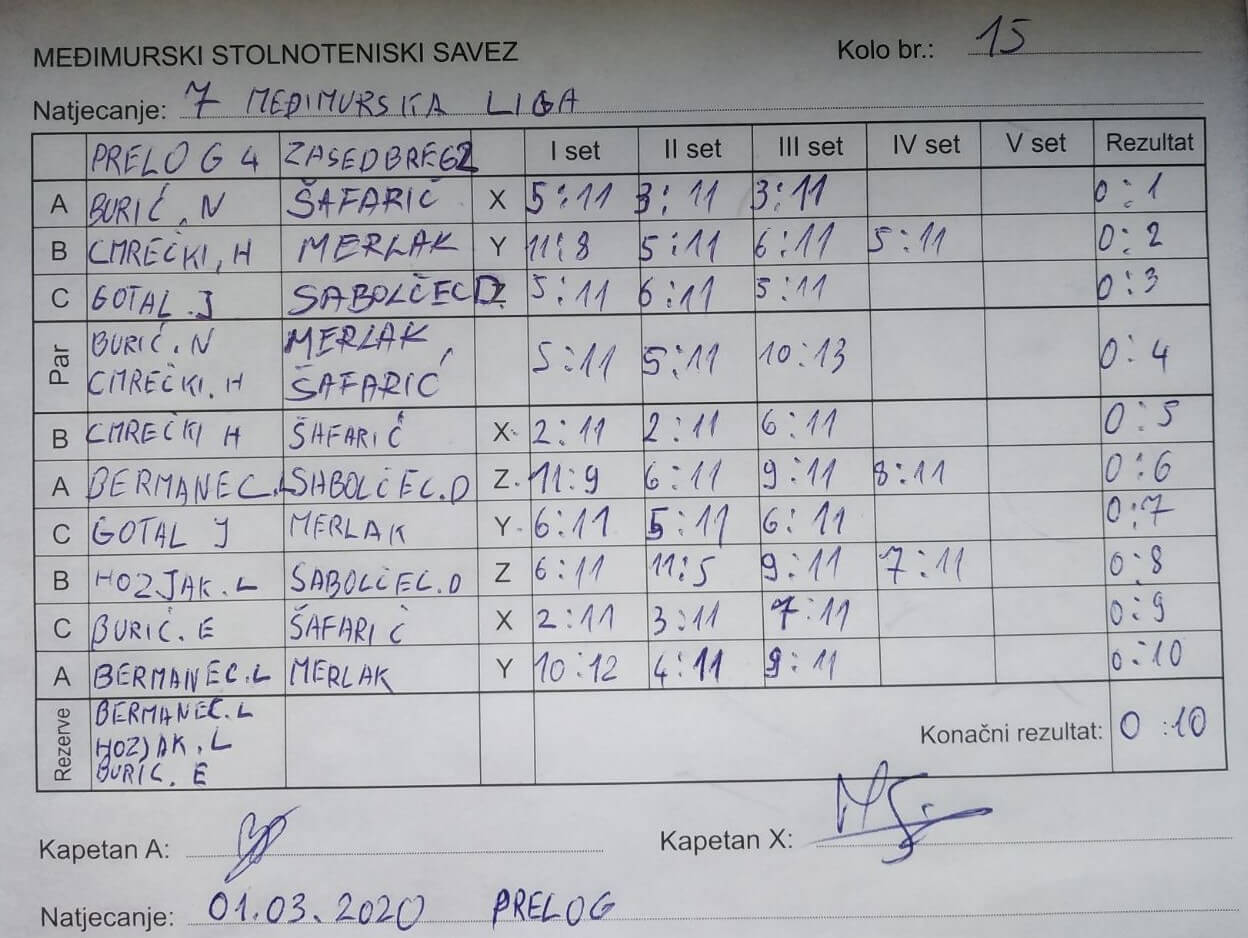 MEĐIMURSKI STOLNOTENISKI SAVEZ Kolo br.: 15
Natjecanje: 7 MEĐIMURSKA LIGA
PRELOG 4 ZASEDBREG2 I set II set III set IV set V set Rezultat
A BURIĆ, N ŠAFARIĆ X 5:11 3:11 3:11 0:1
B CMREČKI, H MERLAK Y 11:8 5:11 6:11 5:11 0:2
C GOTAL . J SABOLČEC D Z 5:11 6:11 5:11 0:3
Par BURIĆ. N MERLAK, 5:11 5:11 10:13 0:4
CMREČKI. H ŠAFARIĆ
B CMREČKI H ŠAFARIĆ X. 2:11 2:11 6:11 0:5
A BERMANEC.L SABOLČEC.D Z. 11:9 6:11 9:11 8:11 0:6
C GOTAL J MERLAK Y. 6:11 5:11 6:11 0:7
B HOZJAK.L SABOLČEC.D Z 6:11 11:5 9:11 7:11 0:8
C BURIĆ. E ŠAFARIĆ X 2:11 3:11 7:11 0:9
A BERMANEC.L MERLAK Y 10:12 4:11 9:11 0:10
Rezerve BERMANEC.L
HOZJAK.L Konačni rezultat: 0:10
BURIĆ. E
Kapetan A: Kapetan X:
Natjecanje: 01.03.2020 PRELOG